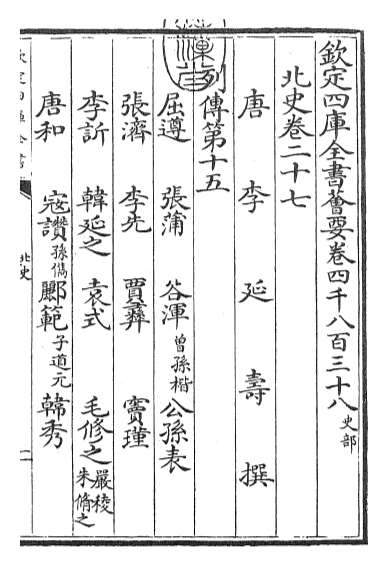 欽定四庫全書薈要卷四千八百三十八 史部
北史卷二十七
唐 李 延 壽 撰
列傳第十五
屈遵 張蒲 谷渾 曾孫楷 公孫表
張濟 李先 賈彝 竇瑾
李訢 韓延之 袁式 毛修之 嚴稜 朱脩之
唐和 寇讚 孫儁 酈範 子道元 韓秀
北史